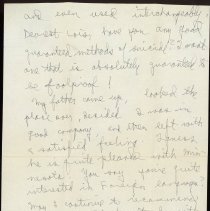 and even used interchangeably.
Dearest Lois, have you any good
guaranted methods of suicide? I want
one that is absolutely guaranted to
be foolproof!
My father came up, looked the
place over, decided I was in
good company, and even left with
a satisfied feeling. I guess
he is quite pleased with Min-
nesota. You say you're quite
interested in Foreign language;
may I continue to recommend